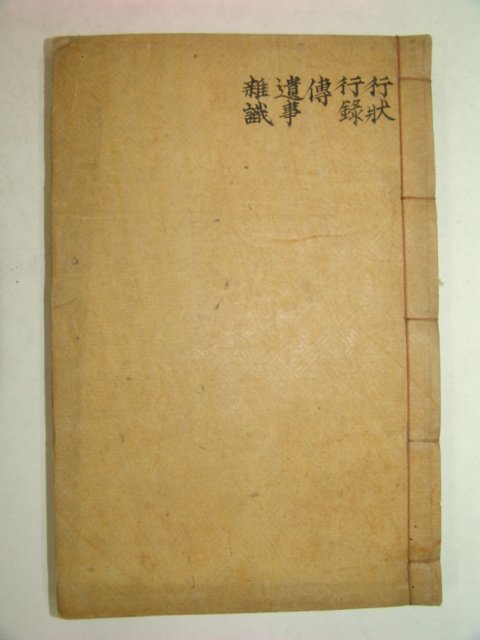 行狀
行錄
傳
遺事
雜識